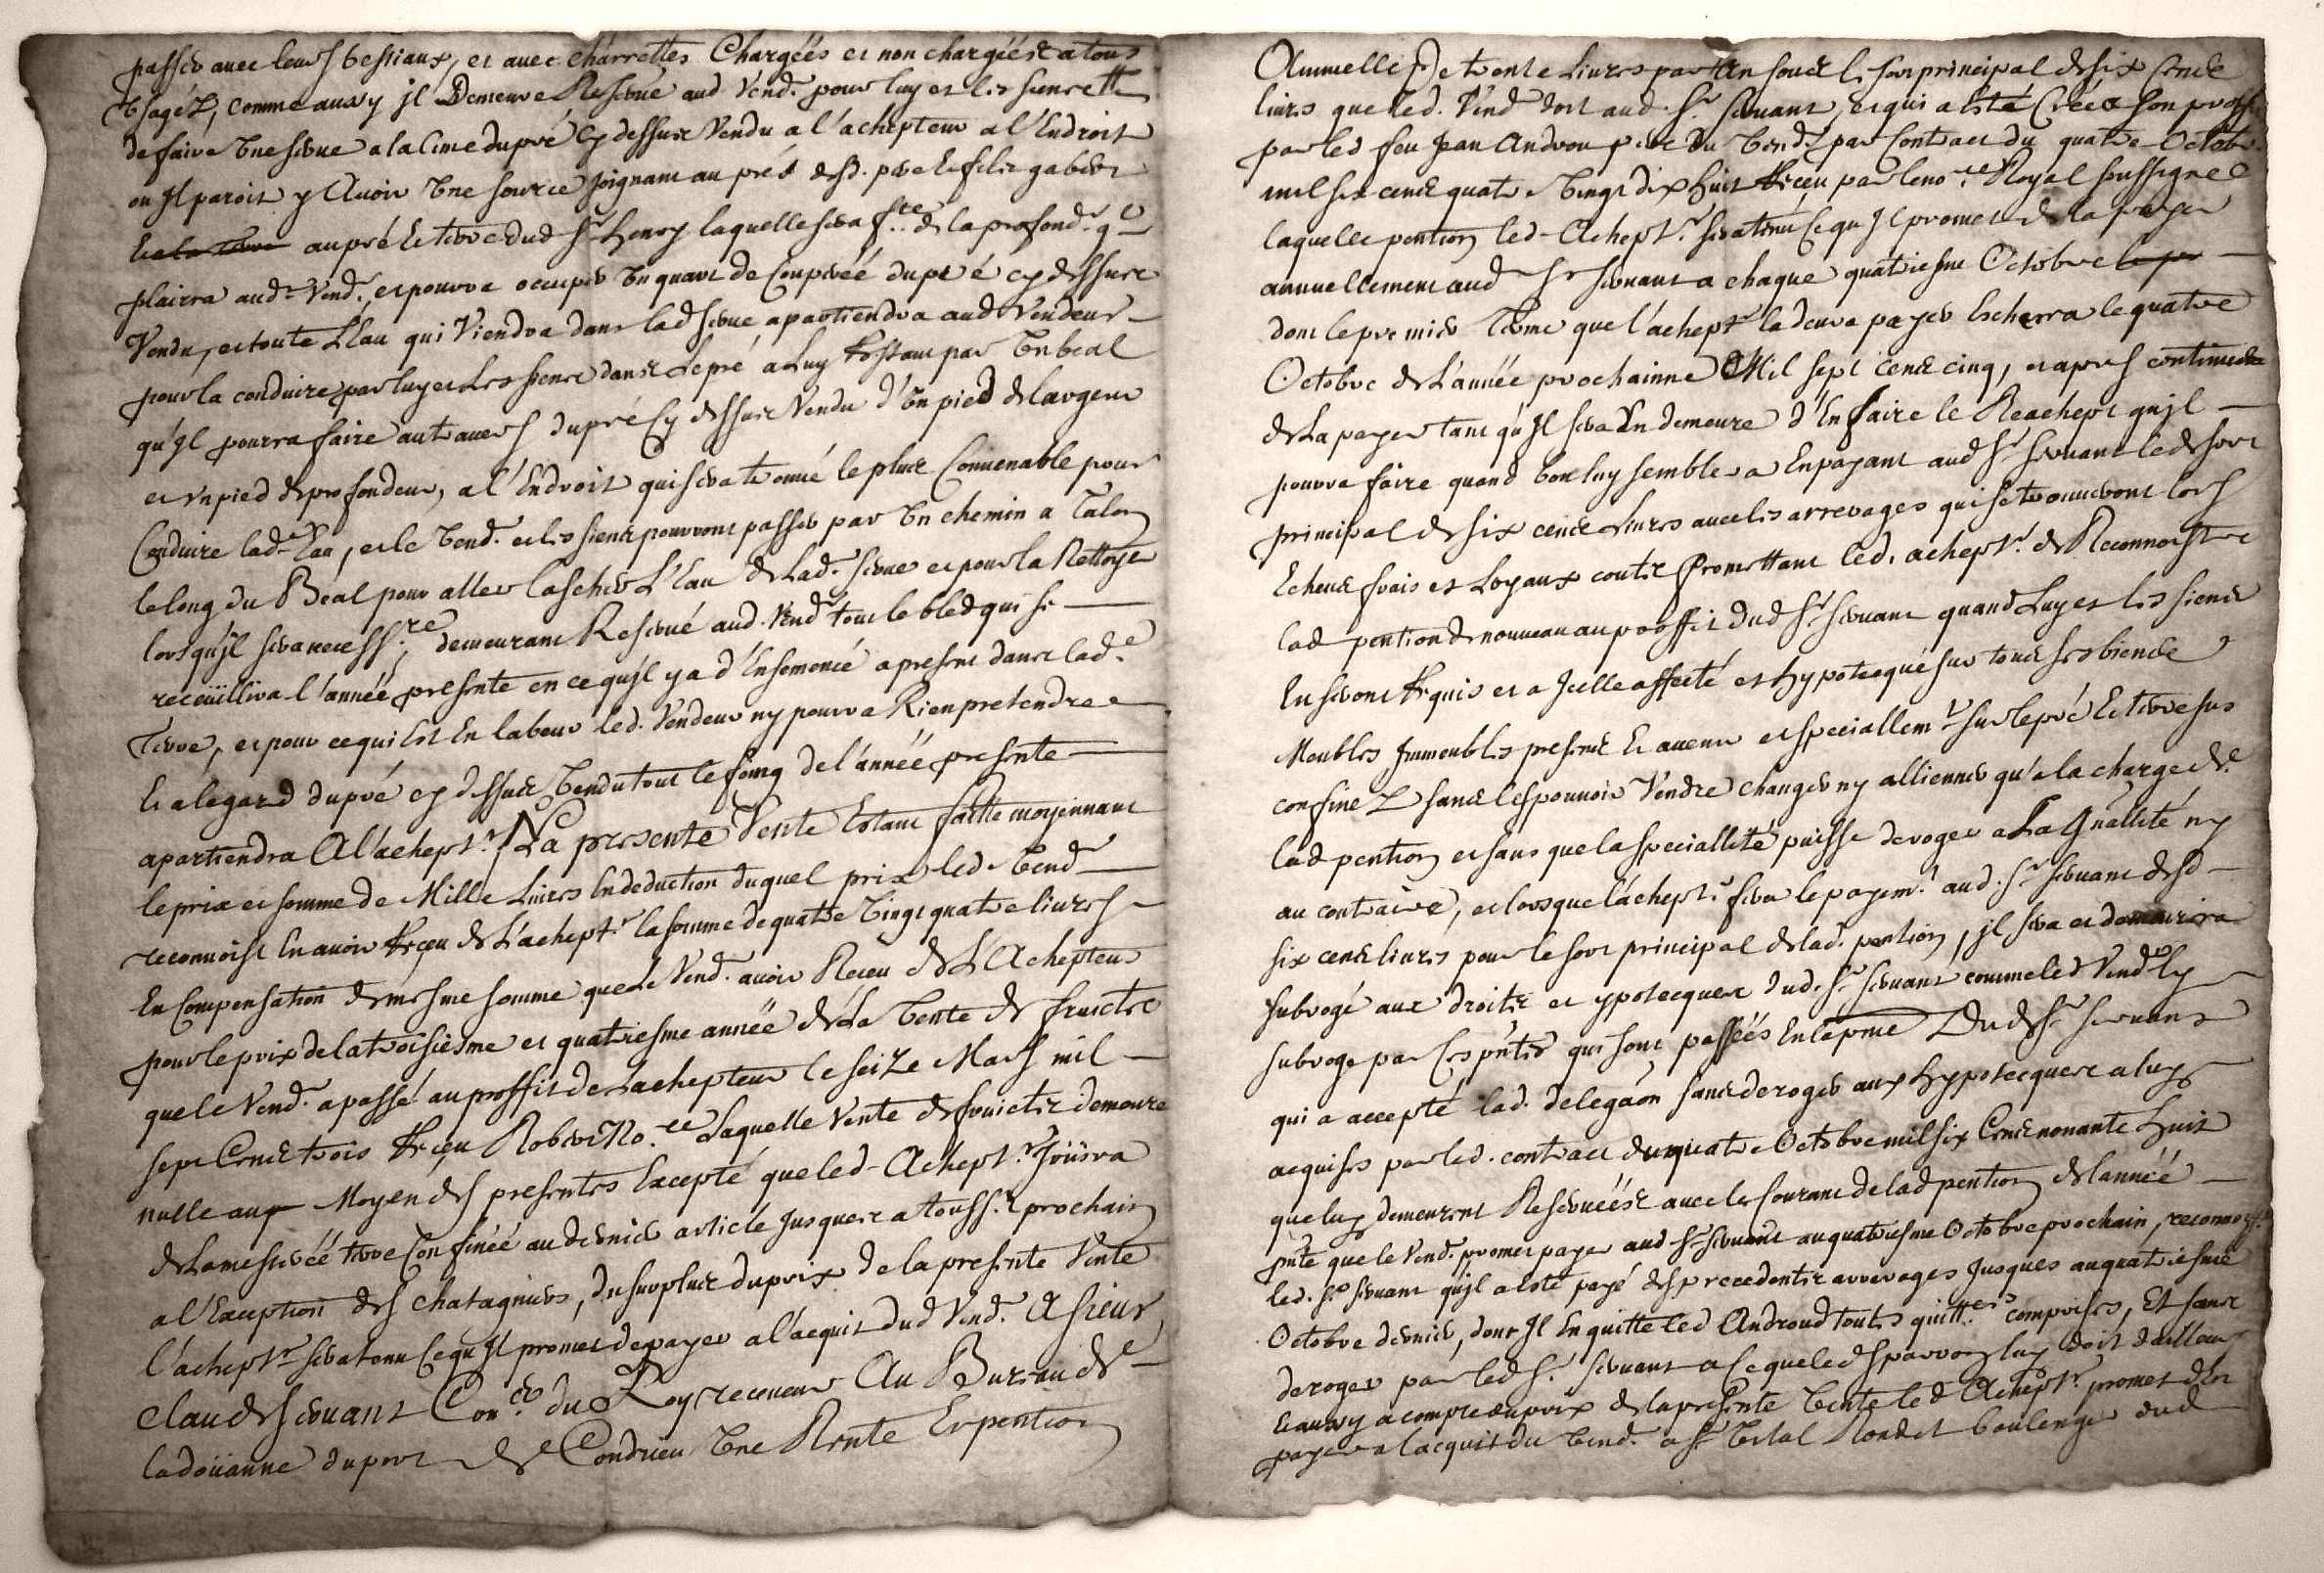 passer avec leurs bestiaux, et avec charrettes Chargéés et non chargéés a tous
Usagéz, comme aussy jl Demeure Reservé aud Vend.r pour luy et les siens
de faire Une serve a la Cime du pré Cy dessus Vendu a l'achepteur a l'Endroit
ou Jl paroit y Avoir Une source Joignant au pré de pere et fils gabert
au pré Et terre dud S.r henry laquelle sera f.te de la profond.r q.l
plairra aud.t Vend.r, et pourra occuper Un quart de Couperéé du pré cy dessus
Vendu, et toute L'Eau qui Viendra dans lad serve apartiendra aud Vendeur
pour la conduire par luy et Les siens dans Le pré a Luy Restant par Un beal
qu'Jl pourra faire au travers du pré Cy dessus Vendu d'Un pied de largeur
et Un pied de profondeur, a l'Endroit qui sera trouvé le plus Convenable pour
Conduire lad.e Eau, et le Vend.r et les siens pourront passer par Un chemin a Talon
le long du Beal pour aller lascher L'Eau de Lad.e serve et pour la Nettoyer
lorsqu'jl sera necess.re, demeurant Reservé aud. Vend.r tout le bled qui se
recüillira l'annéé presente en ce qu'jl y a d'Ensemencé a present dans lad.e
Terre, et pour ce qui Est En labeur led. Vendeur ny pourra Rien pretendre
Et a legard du pré cy dessus Vendu tout le foing de l'annéé presente
apartiendra A l'achept.r, La presente Vente Estant faitte moyennant
le prix et somme de Mille Livres En deduction duquel prix led Vend.r
reconnoist En avoir Receu de L'achept.r la somme de quatre Vingt quatre livres
En Compensation de mesme somme que Le Vend.r avoir Receu de L'Achepteur
pour le prix de la troisiesme et quatriesme année de La Vente de fruicts
que le Vend.r a passé au proffit de Lachepteur le seize Mars mil
sept Cents trois Receu Robert No.re Laquelle Vente de fruicts demeure
nulle au Moyen des presentes Excepté que led Achept.r Joüira
de la terre Confinéé au dernier article Jusques a Touss.t prochain
a l'Exception des chatagniers, du surplus du prix de la presente Vente
l'achept.r sera tenu Ce qu Jl promet de payer a l'acquit dud Vend.r A sieur
Claude servant Con.er du Roy receveur Au Bureau de
la doüanne du port de Condrieu Une Rente Et pention
Annuelle De trente Livres par An sous le sort principal de six Cents
livres que led. Vend.r doit aud. S.r servant, et qui a Esté Créée a son proffit
par led feu Jean Androu pere du Vend.r par Contract du quatre Octobre
mil six cents quatre Vingt dix huit Receu par le no.re Royal soussigné
laquelle pention led Achept.r sera tenu Ce qu Jl promet de la payer
annuellement aud S.r servant a chaque quatriesme Octobre
dont le premier Terme que l'achept.r la devra payer Escherra le quatre
Octobre de L'année prochainne Mil sept Cents cinq, et apres continuera
de La payer tant qu'Jl sera En demeure d'En faire le Reachept qu'jl
pourra faire quand bon luy semblera En payant aud S.r servant led sort
principal de six cents Livres avec les arrerages qui se trouveront lors
Echeus frais et Loyaux couts Promettant led. achept.r de Reconnoistre
lad pention de nouveau au proffit dud S.r servant quand Luy et les siens
En seront Requis et a Jcelle affecté et hypotecqué sur tous ses biens
Meubles Jmmeubles presents Et avenir et speciallem.t sur le pré Et terre sus
confinez sans les pouvoir Vendre changer ny alliener qu'a la charge de
lad pention et sans que la speciallité puisse deroger a La Gnallité ny
au contraire, et lorsque l'achept.r fera le payem.t aud. S.r servant desd
six cents livres pour le sort principal de lad. pention, jl sera et demeurera
subrogé aux droits et ypotecques dud. S.r servant comme led Vend.r ly
subroge par Ces pntes qui sont passéés En la pnce Dud S.r servant
qui a accepté lad. delegaon sans deroger aux hypotecques a luy
acquises par led. contract du quatre Octobre mil six Cents nonante huit
que luy demeurent Reservéés avec le Courant de lad pention de lannéé
pnte que le Vend.r promet payer aud S.r servant au quatriesme Octobre prochain, reconnoiss.t
led. S.r servant qu'jl a Esté payé des precedents arrerages Jusques au quatriesme
Octobre dernier, dont Jl En quitte led Androud toutes quitt.ces comprises, Et sans
deroger par led S.r servant a Ce que led luy doit d'ailleurs
Et aussy a compte du prix de la presente Vente led Achept.r promet de
payer a lacquit du Vend.r a S.r Vital Rondet boulenger dud